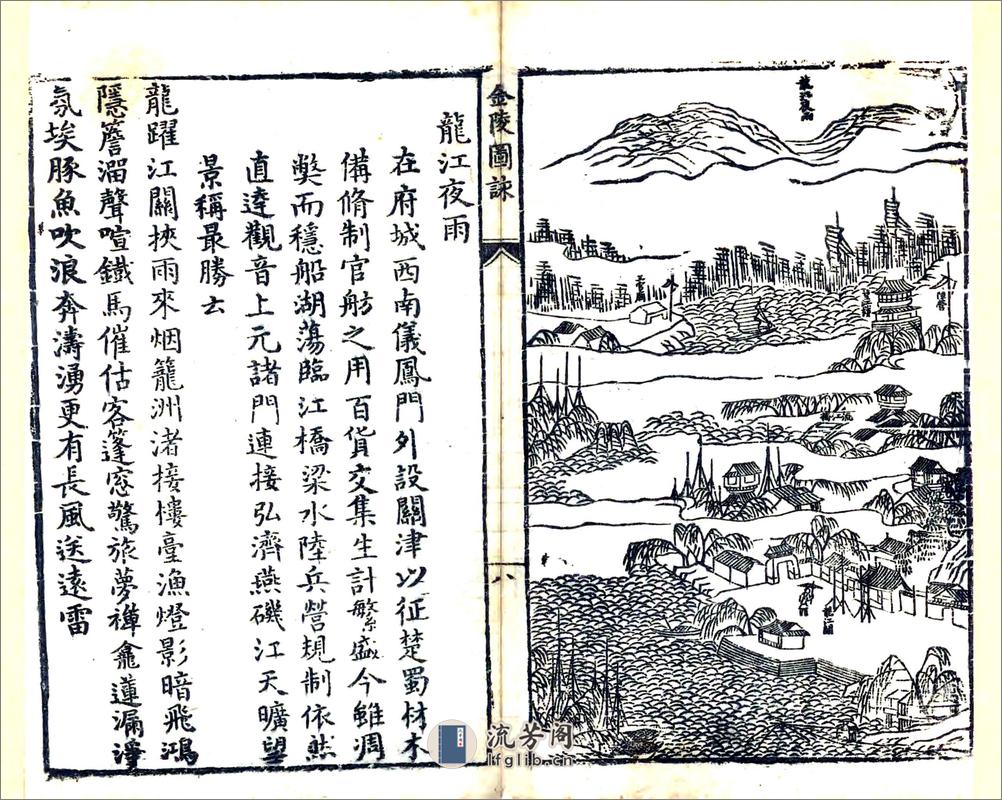 龍江夜雨
金陵圖詠
八
龍江夜雨
在府城西南儀鳳門外設關津以征楚蜀材木
備脩制官舫之用百貨交集生計繁盛今雖凋
獘而穩船湖蕩臨江橋梁水陸兵營規制依然
直達觀音上元諸門連接弘濟燕磯江天曠望
景稱最勝云
龍躍江關挾雨來烟籠洲渚接樓臺漁燈影暗飛鴻
隱簷溜聲喧鐵馬催估客篷窓驚旅夢禪龕蓮漏淨
氛埃豚魚吹浪奔濤湧更有長風送遠雷
龍江關
流芳阁
lfglib.cn